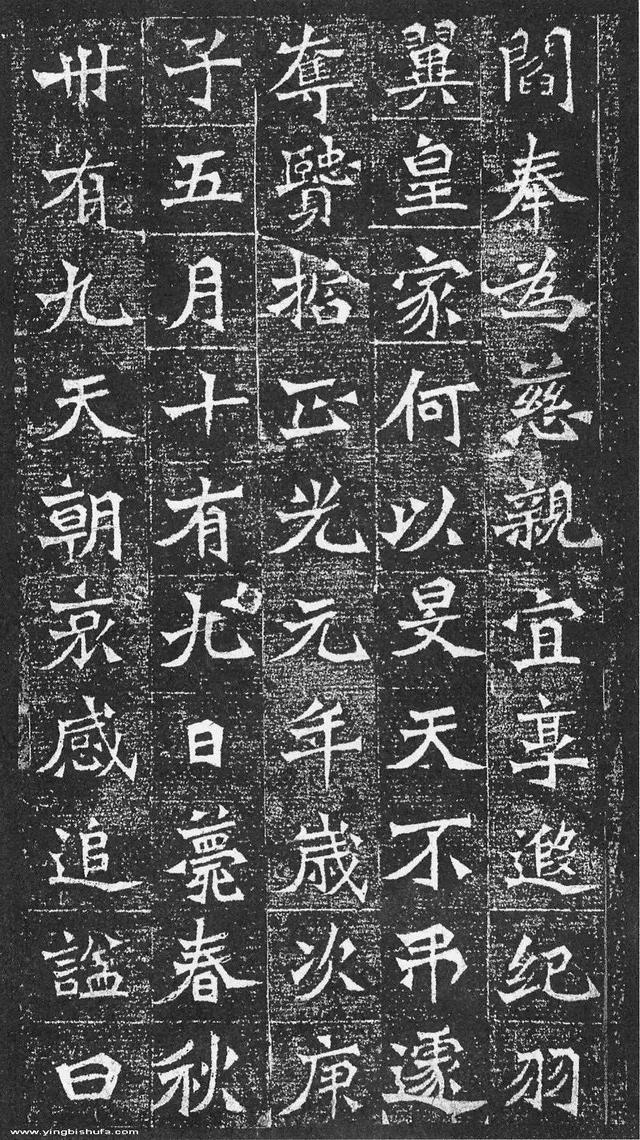 閻奉為慈親宜享遐纪羽
翼皇家何以旻天不弔遽
奪賢拈正光元年歲次庚
子五月十有九日薨春秋
卌有九天朝哀感追謚曰
www.yingbishufa.com